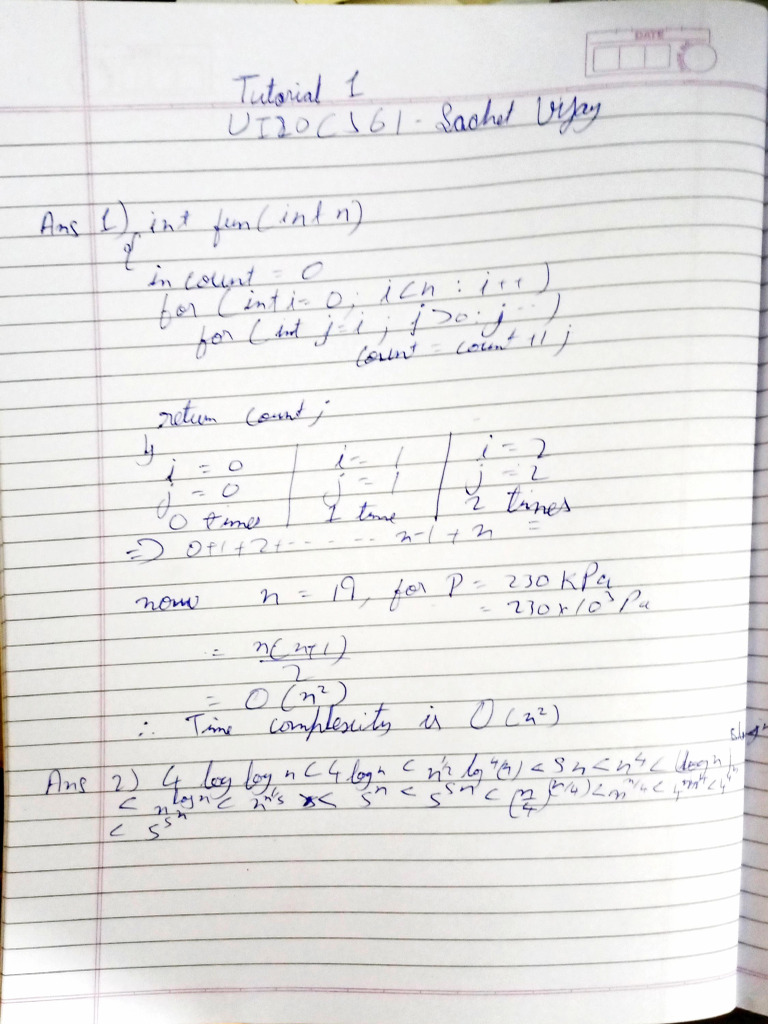 DATE
Tutorial 1
UI20CS61 - Sachet Vijay
Ans 1) int fun(int n)
{
in count = 0
for (int i= 0; i<n : i++)
for (int j=i ; j>0: j--)
count = count + 1;
return count;
}
i = 0 | i = 1 | i = 2
j = 0 | j = 1 | j = 2
0 times | 1 time | 2 times
=> 0+1+2+------ n-1 + n =
now n = 19, for P = 230 KPa
= 230×10³ Pa
= n(n+1)/2
= O(n²)
∴ Time complexity is O(n²)
Ans 2) 4 log log n < 4 log n < n^1/2 log^4(n) < 5n < n^4 < (log n)
< n^log n < n^n^1/5 < 5^n < 5^5n < (n/4)^(n/4) < n^n/4 < 4^n^4 <
< 5^5^n